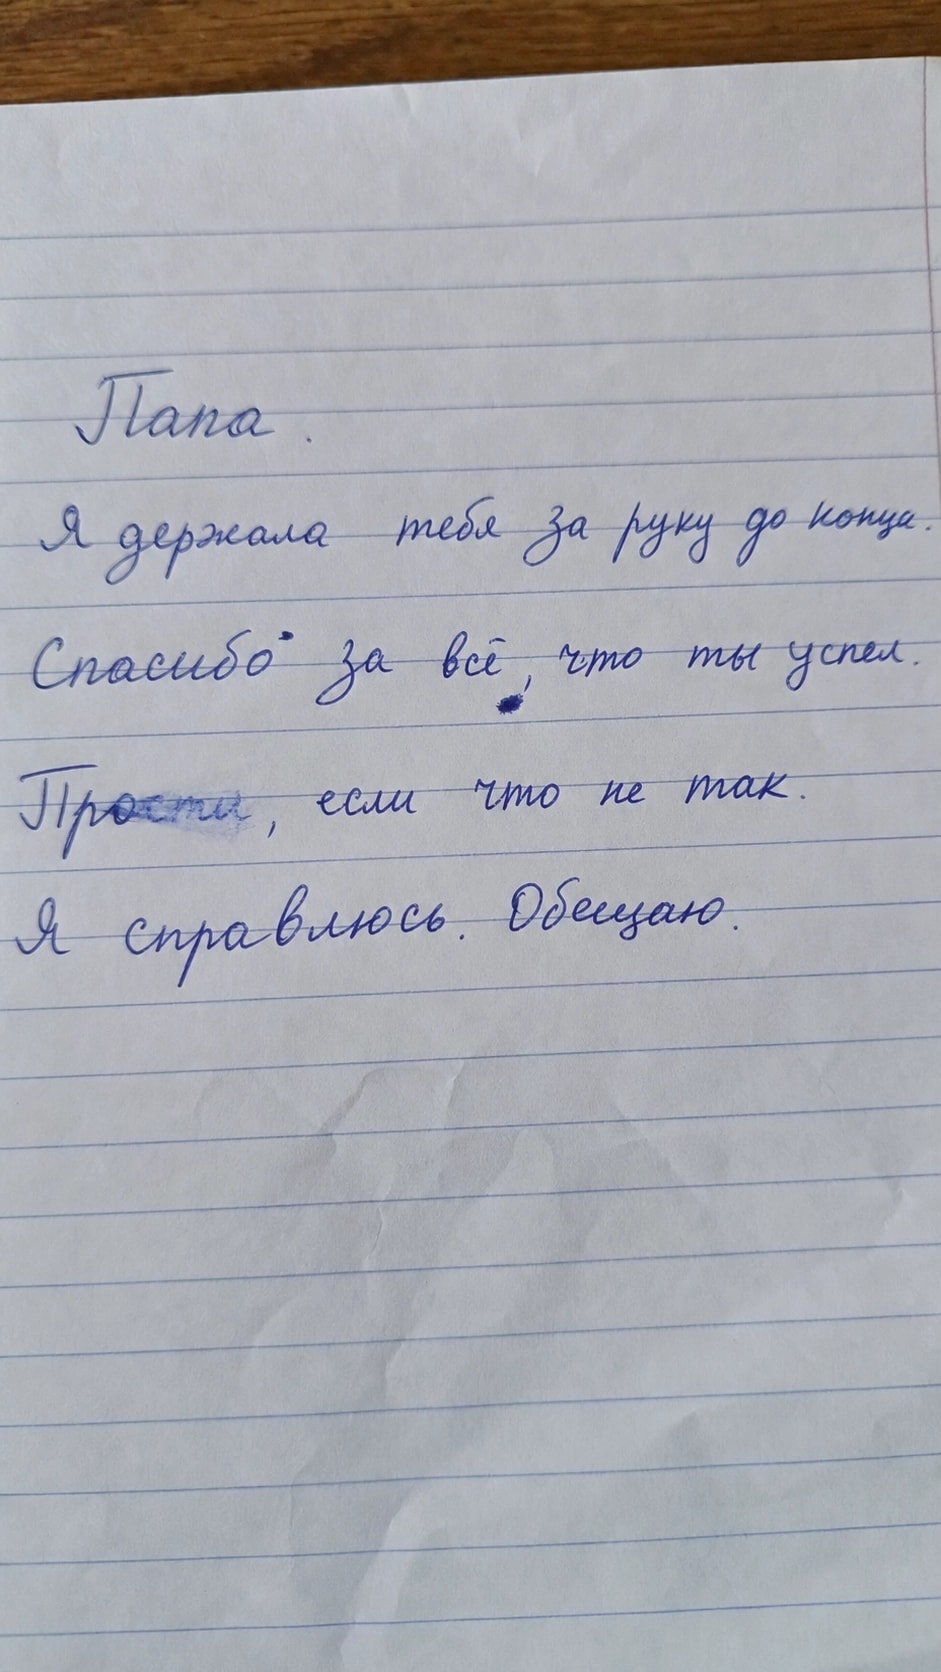 Папа.
Я держала тебя за руку до конца.
Спасибо за всё, что ты успел.
Прости, если что не так.
Я справлюсь. Обещаю.